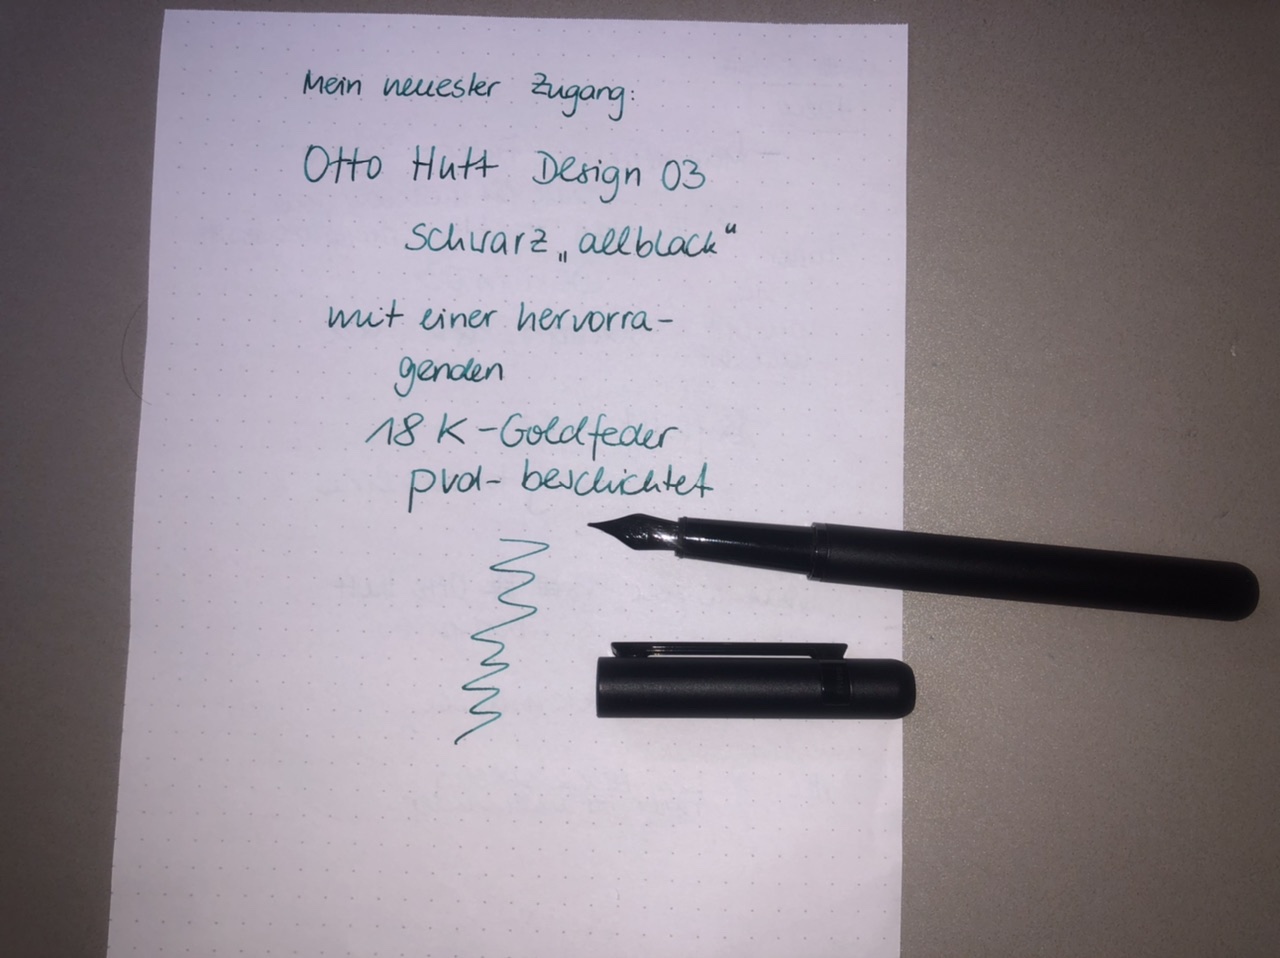 Mein neuester Zugang:
Otto Hutt Design 03
Schwarz „allblack“
mit einer hervorra-
genden
18 K-Goldfeder
pvd- beschichtet